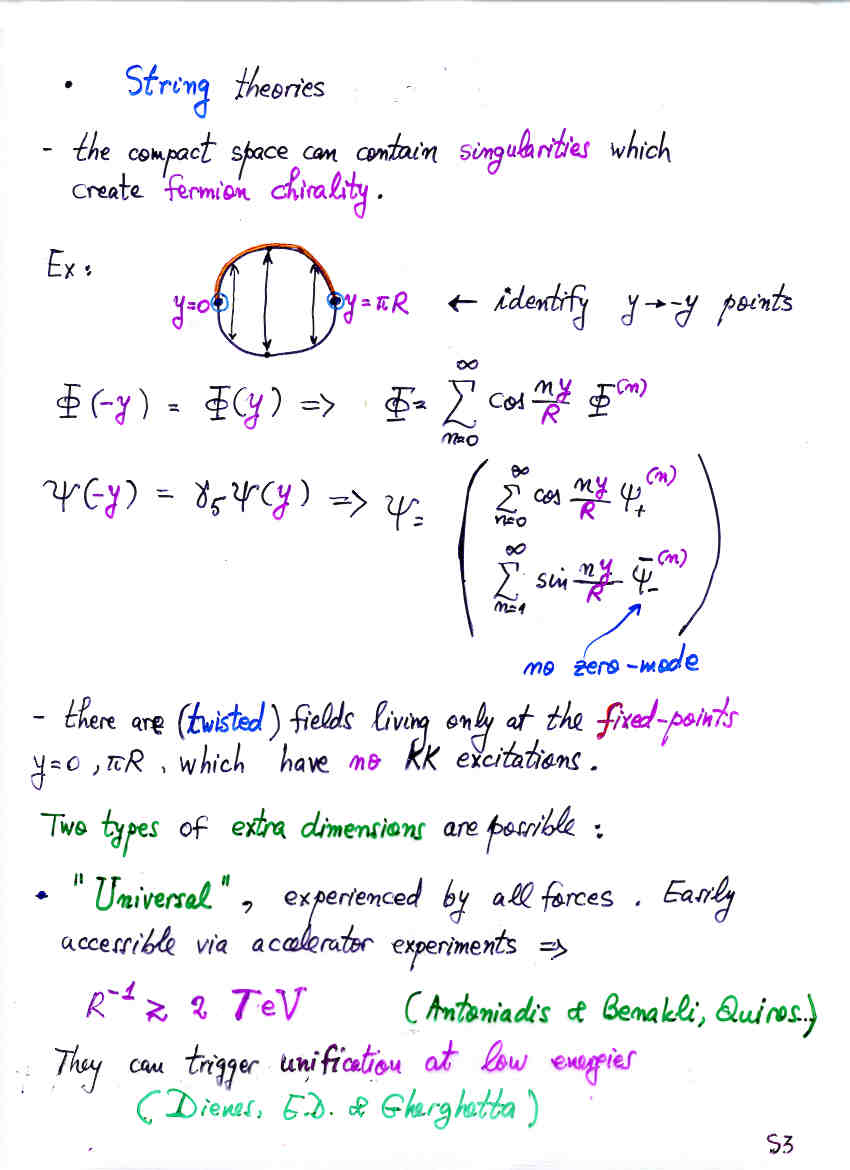 • String theories
- the compact space can contain singularities which
create fermion chirality.
Ex:
y=0 y=πR ← identify y→-y points
Φ(-y) = Φ(y) => Φ = ∑_{n=0}^{∞} cos ny/R Φ^(n)
Ψ(-y) = γ₅Ψ(y) => Ψ = ( ∑_{n=0}^{∞} cos ny/R Ψ₊^(n)
∑_{n=1}^{∞} sin ny/R Ψ̄₋^(n) )
no zero-mode
- there are (twisted) fields living only at the fixed-points
y=0, πR, which have no KK excitations.
Two types of extra dimensions are possible :
• "Universal", experienced by all forces. Easily
accessible via accelerator experiments =>
R⁻¹ ≳ 2 TeV (Antoniadis & Benakli, Quiros..)
They can trigger unification at low energies
(Dienes, E.D. & Gherghetta)
S3